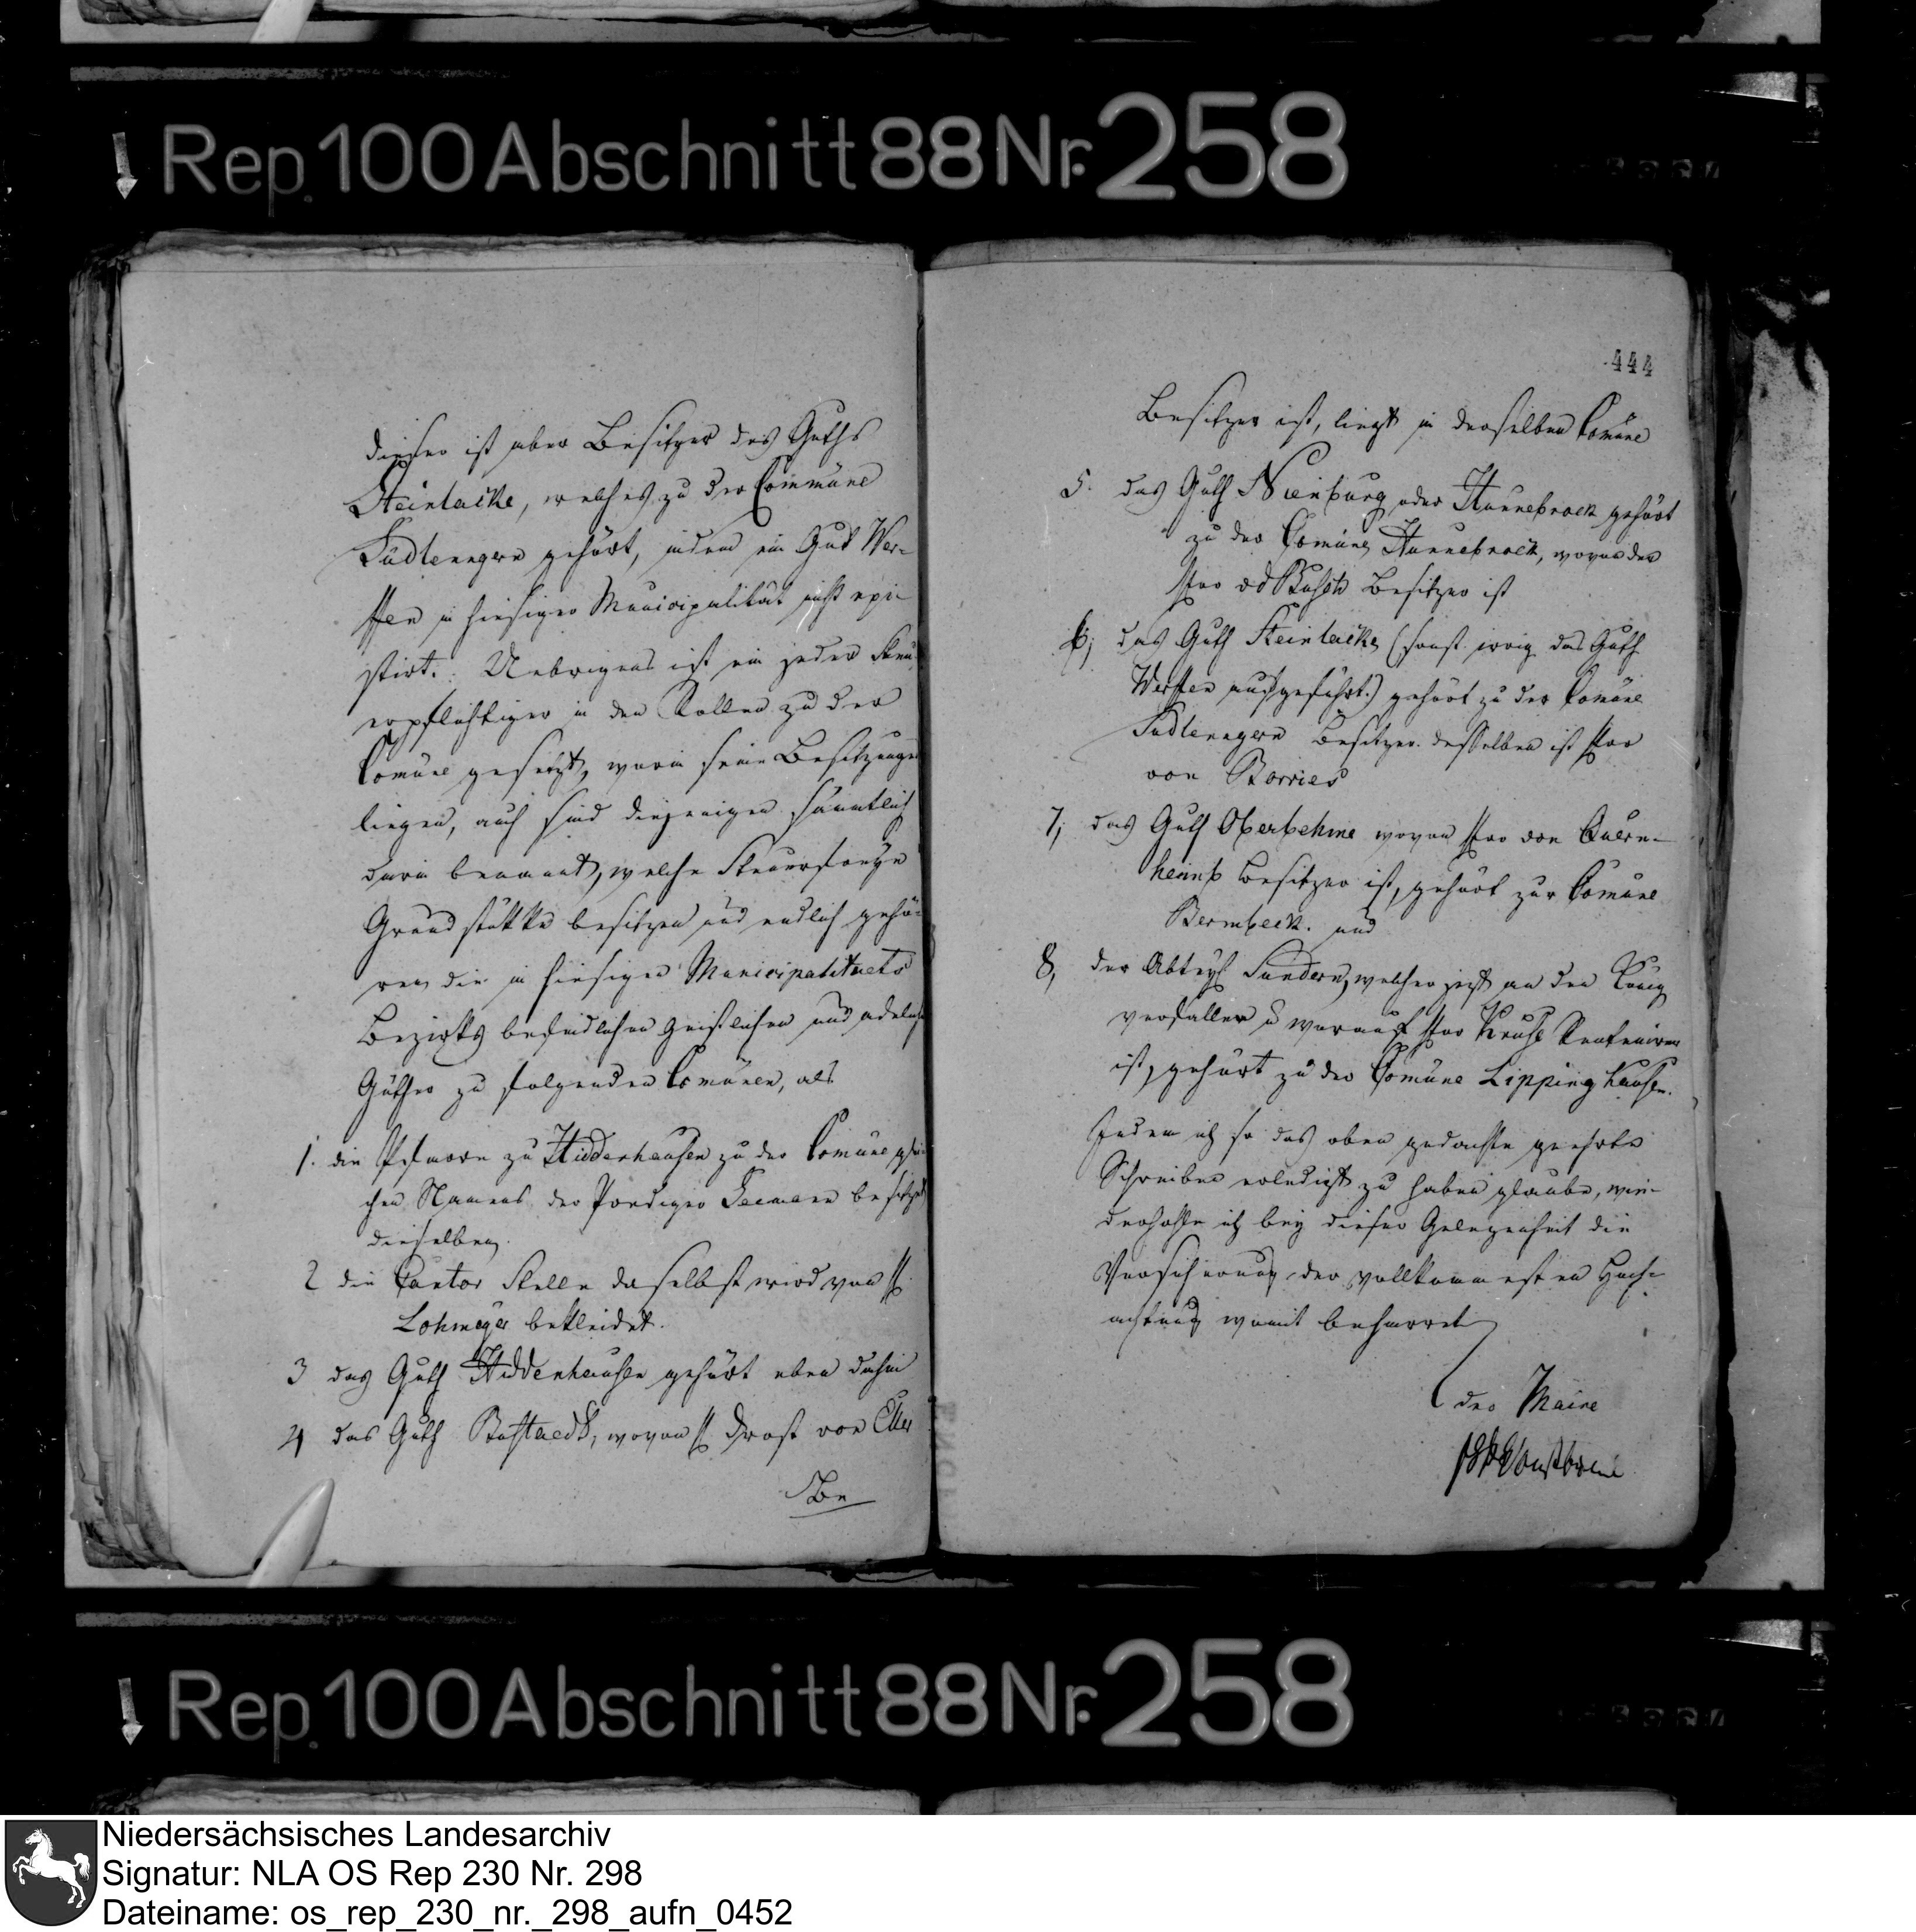 Rep. 100 Abschnitt 88 Nr. 258
dieser ist aber Besitzer des Guths
Steinlacke, welches zu der Commüne
Südlengern gehört, indem ein Gut Wer-
sten in hiesiger Municipalität nicht exi-
stirt. Uebrigens ist ein jeder Steu-
erpflichtiger in den Rollen zu der
Comüne gesetzt, worin seine Besitzungen
liegen, auch sind diejenigen sämmtlich
darin benannt, welche Steuerfreye
Grundstükke besitzen und endlich gehö-
ren die in hiesigen Municipalitaets
Bezirks befindlichen geistlichen und adelichen
Güther zu folgenden Comünen, als
1. die Pfarre zu Hiddenhausen zu der Comüne glei-
chen Namens der Prediger Seemann besitzet
dieselben.
2 die Cantor Stelle daselbst wird von H.
Lohmeyer bekleidet.
3 das Guth Hiddenhausen gehört eben dahin
4 das Guth Bustaedt, wovon H. Drost von Eller
Be
444
Besitzer ist, liegt in derselben Comüne
5. das Guth Nienburg oder Hunnebrock gehört
zu der Comüne Hunnebrock, wovon der
Herr Busch Besitzer ist
6, das Guth Steinlacke (sonst irrig das Guth
Wersten aufgeführt.) gehört zu der Comüne
Südlengern Besitzer desselben ist Herr
von Borries
7, das Guth Oberbehme wovon Herr von Quern-
heimb Besitzer ist, gehört zur Comüne
Bermbeck. und
8, der Abteyh Sundern, welcher jezt an den König
verfallen u worauf Herr Kruse Rentmeister
ist, gehört zu der Comüne Lippinghausen.
Indem ich so das oben gedachte geehrte
Schreiben erledigt zu haben glaube, wie-
derhohle ich bey dieser Gelegenheit die
Versicherung der vollkommesten Hoch-
achtung womit beharret
der Maire
Rep. 100 Abschnitt 88 Nr. 258
Niedersächsisches Landesarchiv
Signatur: NLA OS Rep 230 Nr. 298
Dateiname: os_rep_230_nr._298_aufn_0452